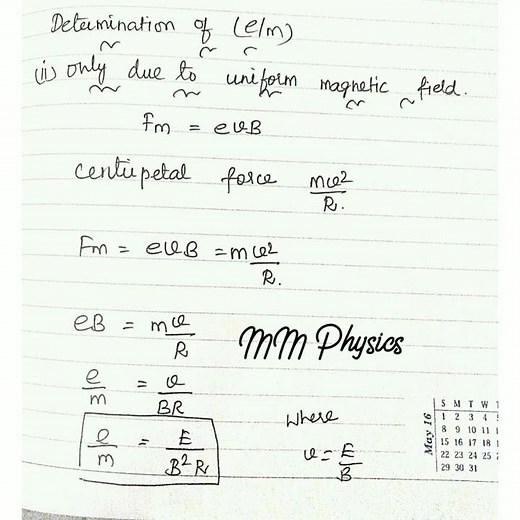 Determination of (e/m)
(ii) only due to uniform magnetic field.
Fm = evB
Centripetal force mv²/R.
Fm = evB = mv²/R.
eB = mv/R
MM Physics
e/m = v/BR
e/m = E/B²R
where
v = E/B
May 16
S M T W
1 2 3 4
8 9 10 11
15 16 17 18
22 23 24 25
29 30 31